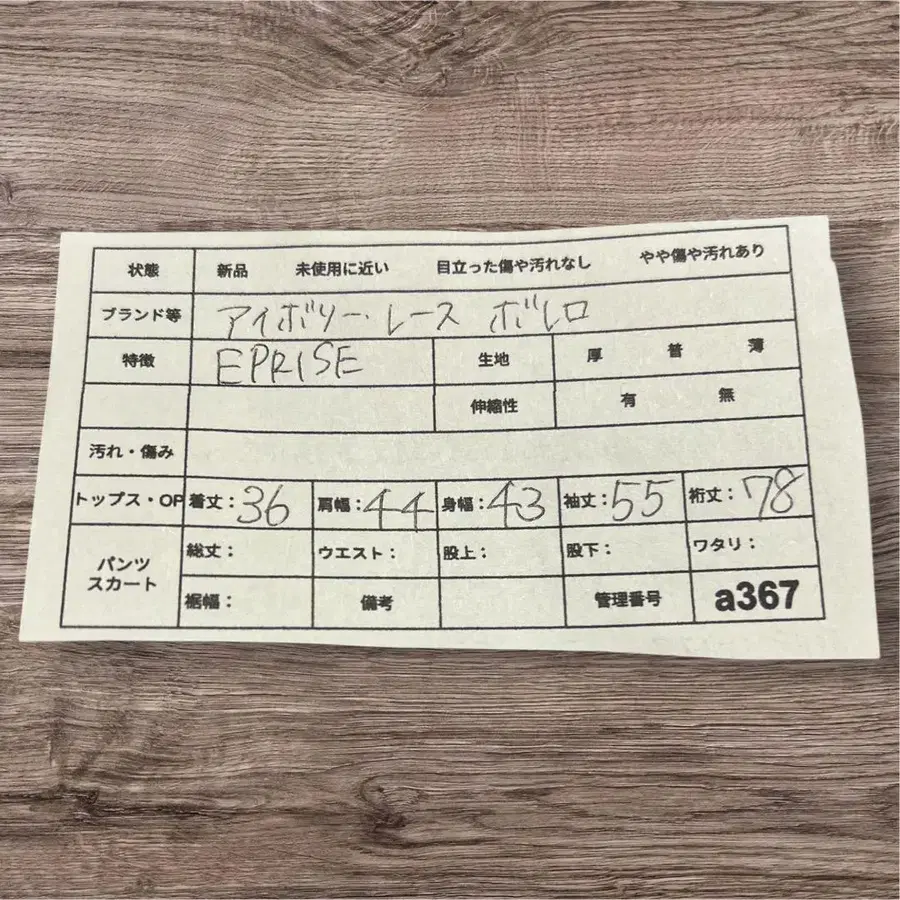 状態 新品 未使用に近い 目立った傷や汚れなし やや傷や汚れあり
ブランド等 アイボリー・レース ボレロ
特徴 EPRISE 生地 厚 普 薄
伸縮性 有 無
汚れ・傷み
トップス・OP 着丈：36 肩幅：44 身幅：43 袖丈：55 裄丈：78
パンツ スカート 総丈： ウエスト： 股上： 股下： ワタリ：
裾幅： 備考 管理番号 a367